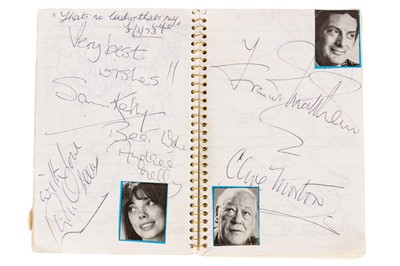 "Thats no lady, thats my
wife"
Very best
wishes!!
Sam Kelly
Best Wishes
with love
Francis Matthews
Clive Morton